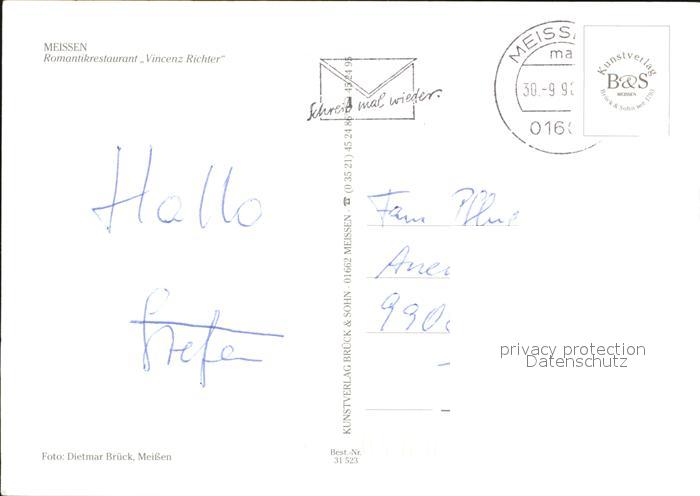 MEISSEN
Romantikrestaurant „Vincenz Richter“
Schreib mal wieder.
MEISS
ma
30.-9 9
016
Kunstverlag
B&S
MEISSEN
Brück & Sohn seit 1793
Hallo
Stefan
KUNSTVERLAG BRÜCK & SOHN · 01662 MEISSEN · ☎ (0 35 21) 45 24 86 45 24 95
Fam
990
privacy protection
Datenschutz
Foto: Dietmar Brück, Meißen
Best.-Nr.
31 523